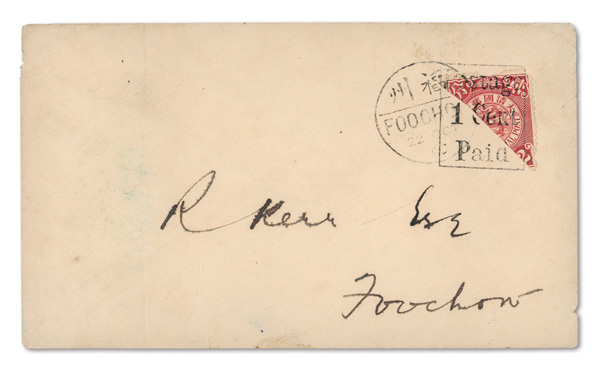 福州
FOOCHO
22
Postage
1 Cent
Paid
R Kerr Esq
Foochow